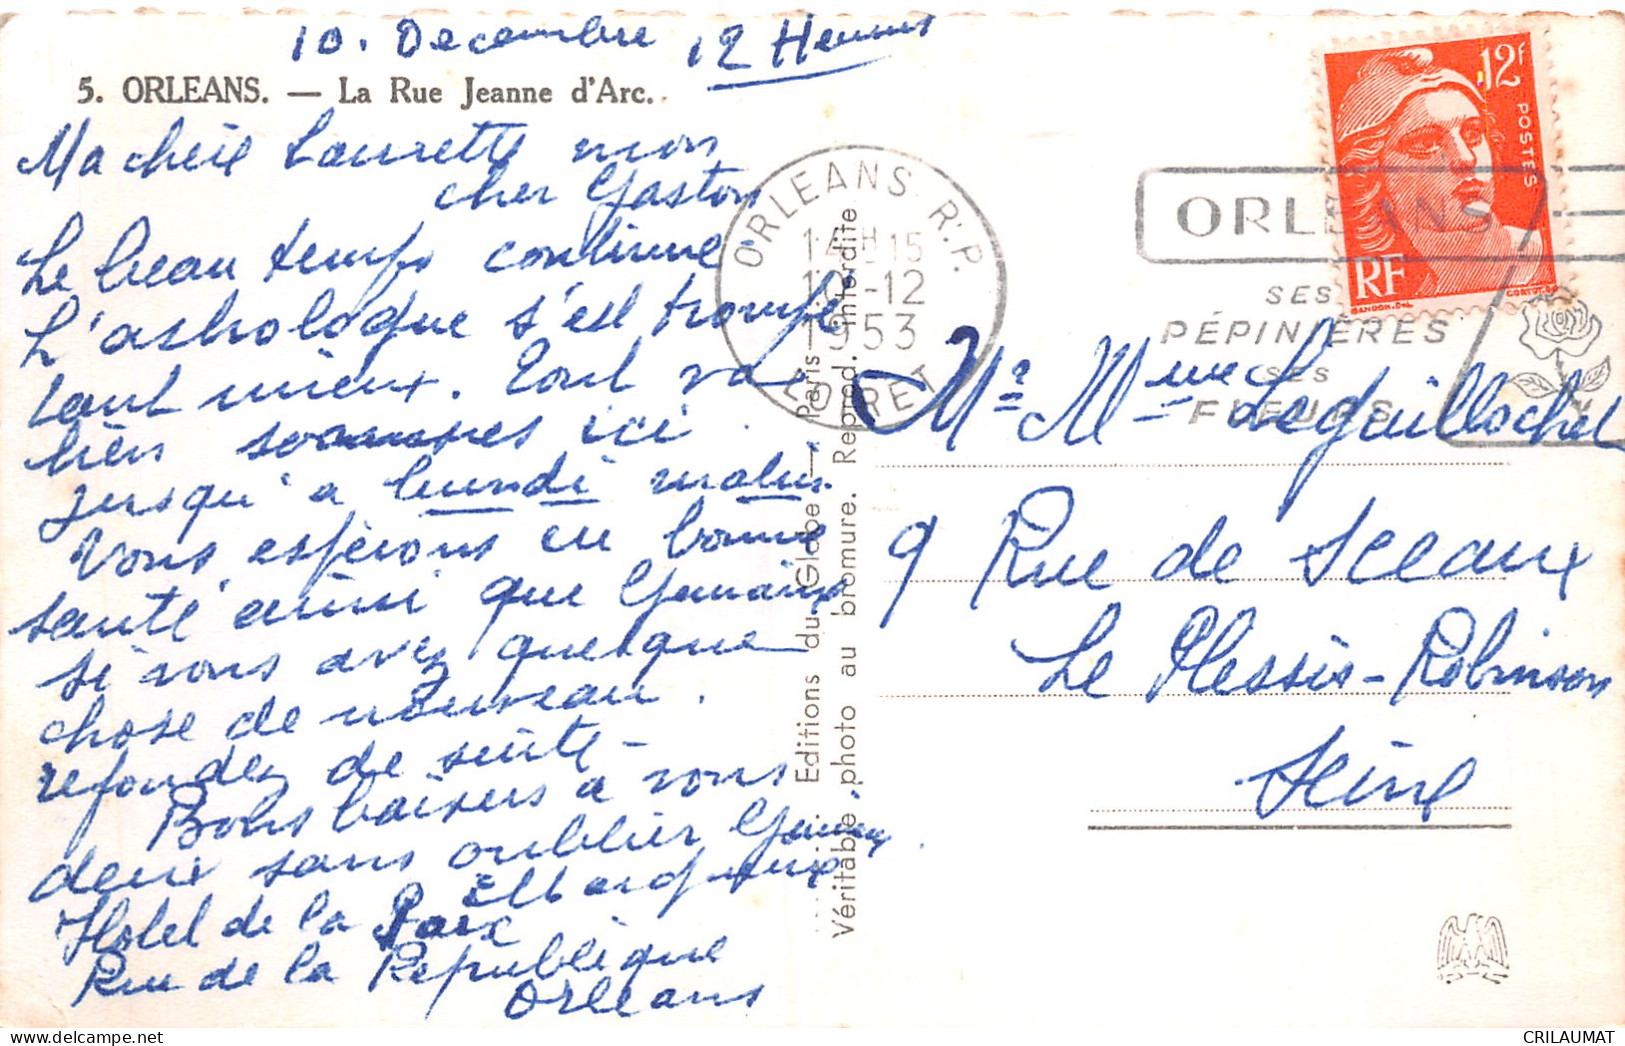 10. Decembre 12 Heures
5. ORLEANS. — La Rue Jeanne d'Arc.
Ma chère Laurette mon
cher Gaston
Le beau temps continue
L'astrologue s'est trompé
tant mieux. Tout va
bien sommes ici
jusqu'a lundi matin.
Vous espérons en bonne
santé ainsi que Germaine
si vous avez quelque
chose de nouveau.
repondez de suite -
Bons baisers a vous
deux sans oublier Germaine
Hotel de la Paix
Rue de la Republique
Orleans
Editions du Globe — Paris
Véritable photo au bromure. Reprod. interdite
ORLEANS R.P.
14H15
10-12
1953
LOIRET
ORLEANS
SES
PÉPINIÈRES
SES
FLEURS
12F
POSTES
RF
GANDON.DEL
CORTOT.SC
Mr Mme Leguillochet
9 Rue de Sceaux
Le Plessis-Robinson
Seine
CRILAUMAT